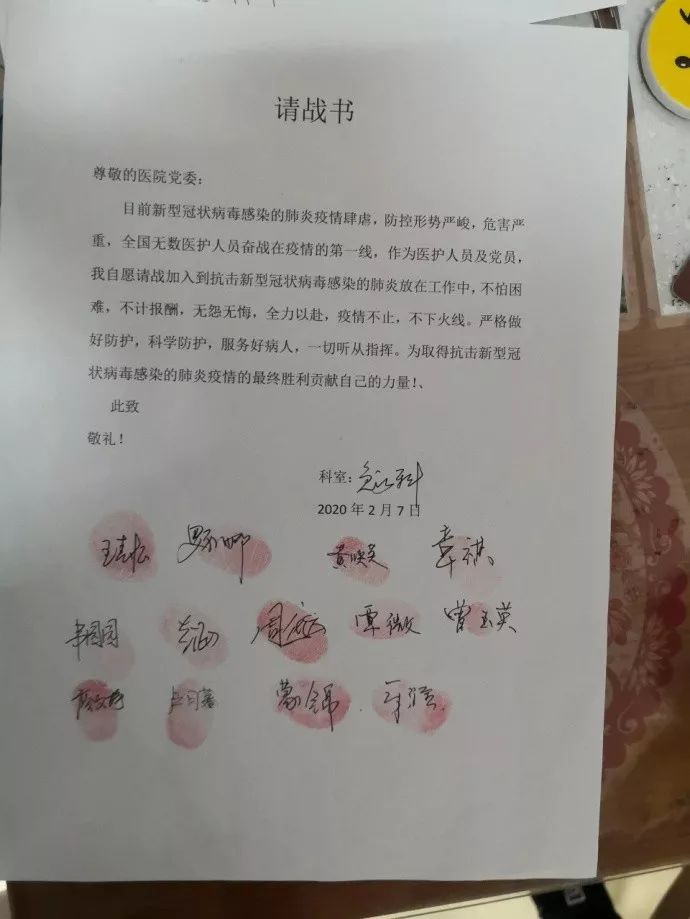 请战书
尊敬的医院党委：
目前新型冠状病毒感染的肺炎疫情肆虐，防控形势严峻，危害严
重，全国无数医护人员奋战在疫情的第一线，作为医护人员及党员，
我自愿请战加入到抗击新型冠状病毒感染的肺炎放在工作中，不怕困
难，不计报酬，无怨无悔，全力以赴，疫情不止，不下火线。严格做
好防护，科学防护，服务好病人，一切听从指挥。为取得抗击新型冠
状病毒感染的肺炎疫情的最终胜利贡献自己的力量！、
此致
敬礼！
科室：急诊科
2020 年 2 月 7 日
韦祺
覃微 曾玉英